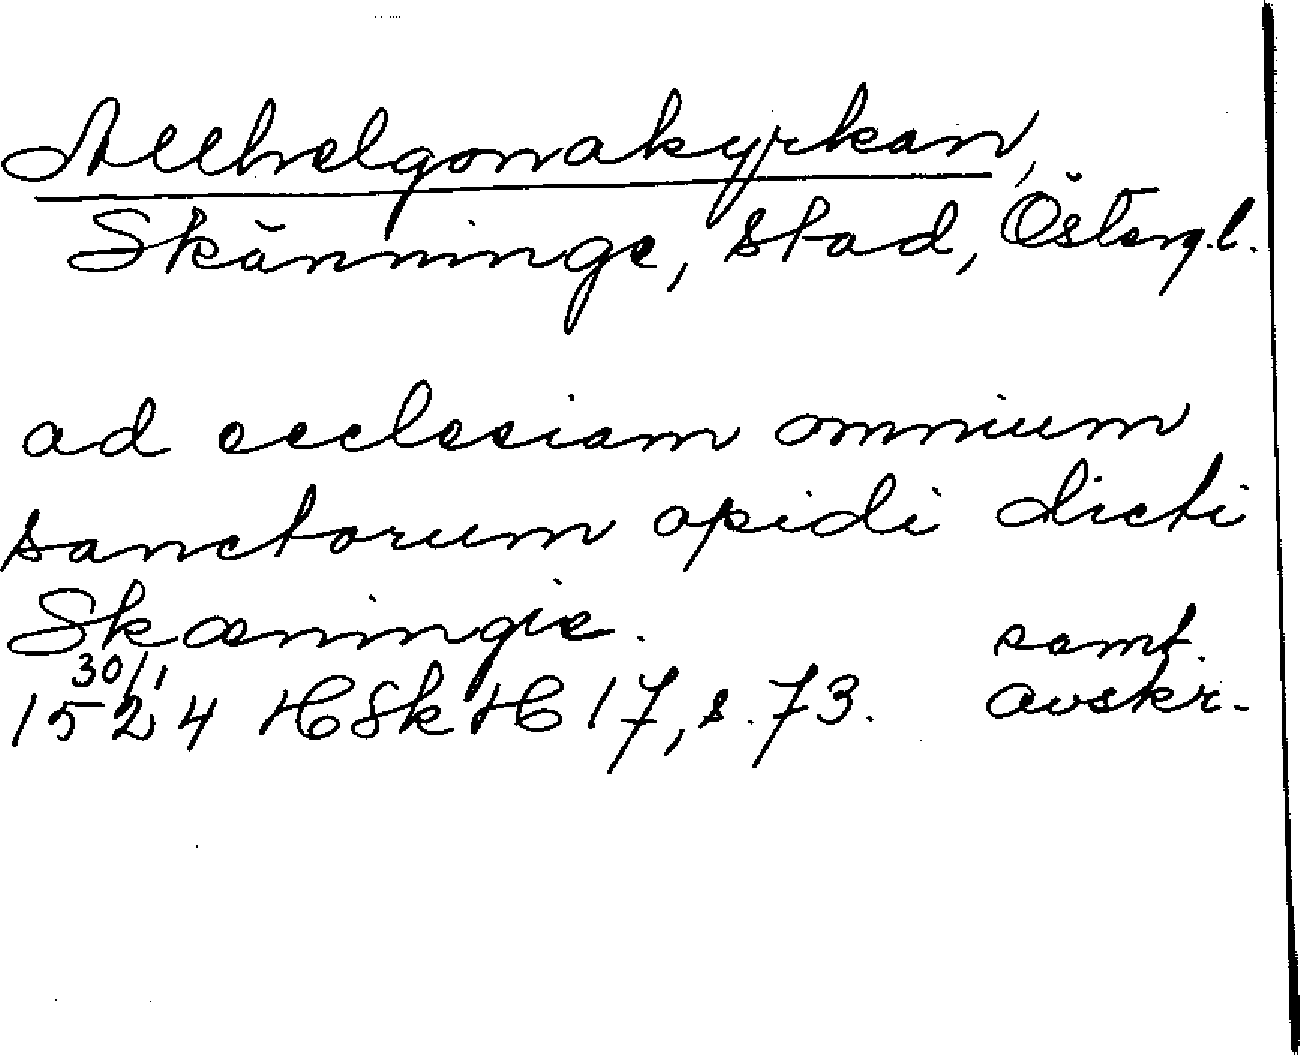 Allhelgonakyrkan,
Skänninge, stad, Östergl.
ad ecclesiam omnium
sanctorum opidi dicti
Skæningie.
samt.
30/1
1524 HSkH 17, s. 73. avskr.